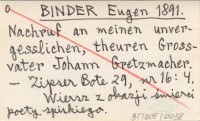 BINDER Eugen 1891.
Nachruf an meinen unver-
gesslichen, theuren Gross-
vater Johann Gretzmacher.
— Zipser Bote 29, nr 16: 4.
Wiersz z okazji śmierci
poety spiskiego.